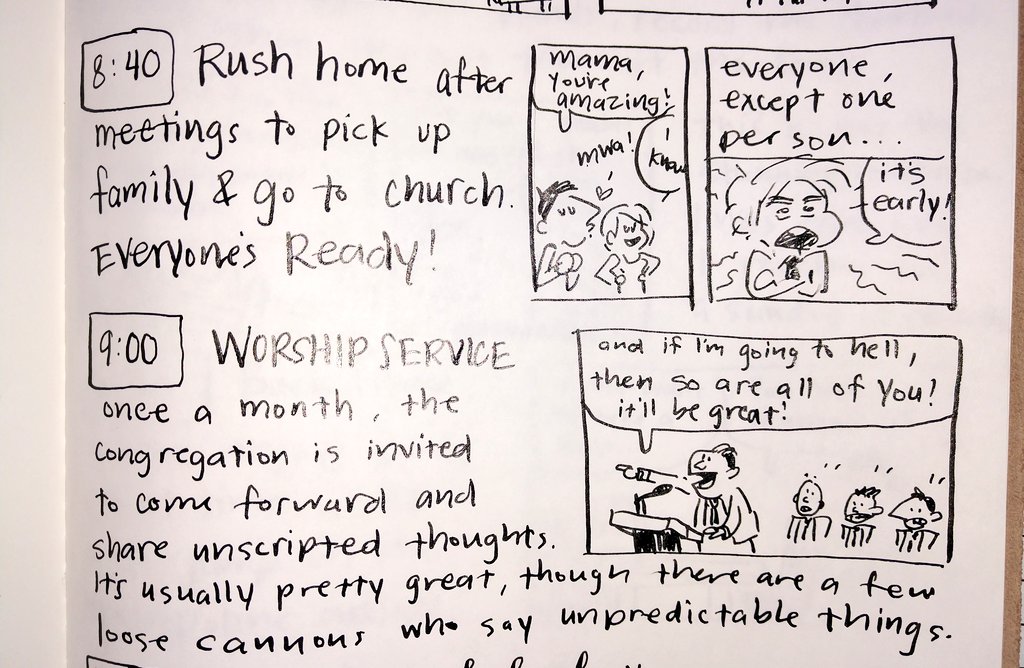 8:40 Rush home after
meetings to pick up
family & go to church.
Everyone's Ready!
mama,
you're
amazing!
mwa!
I
know
everyone,
except one
person...
it's
early!
9:00 WORSHIP SERVICE
once a month, the
congregation is invited
to come forward and
share unscripted thoughts.
It's usually pretty great, though there are a few
loose cannons who say unpredictable things.
and if I'm going to hell,
then so are all of you!
it'll be great!